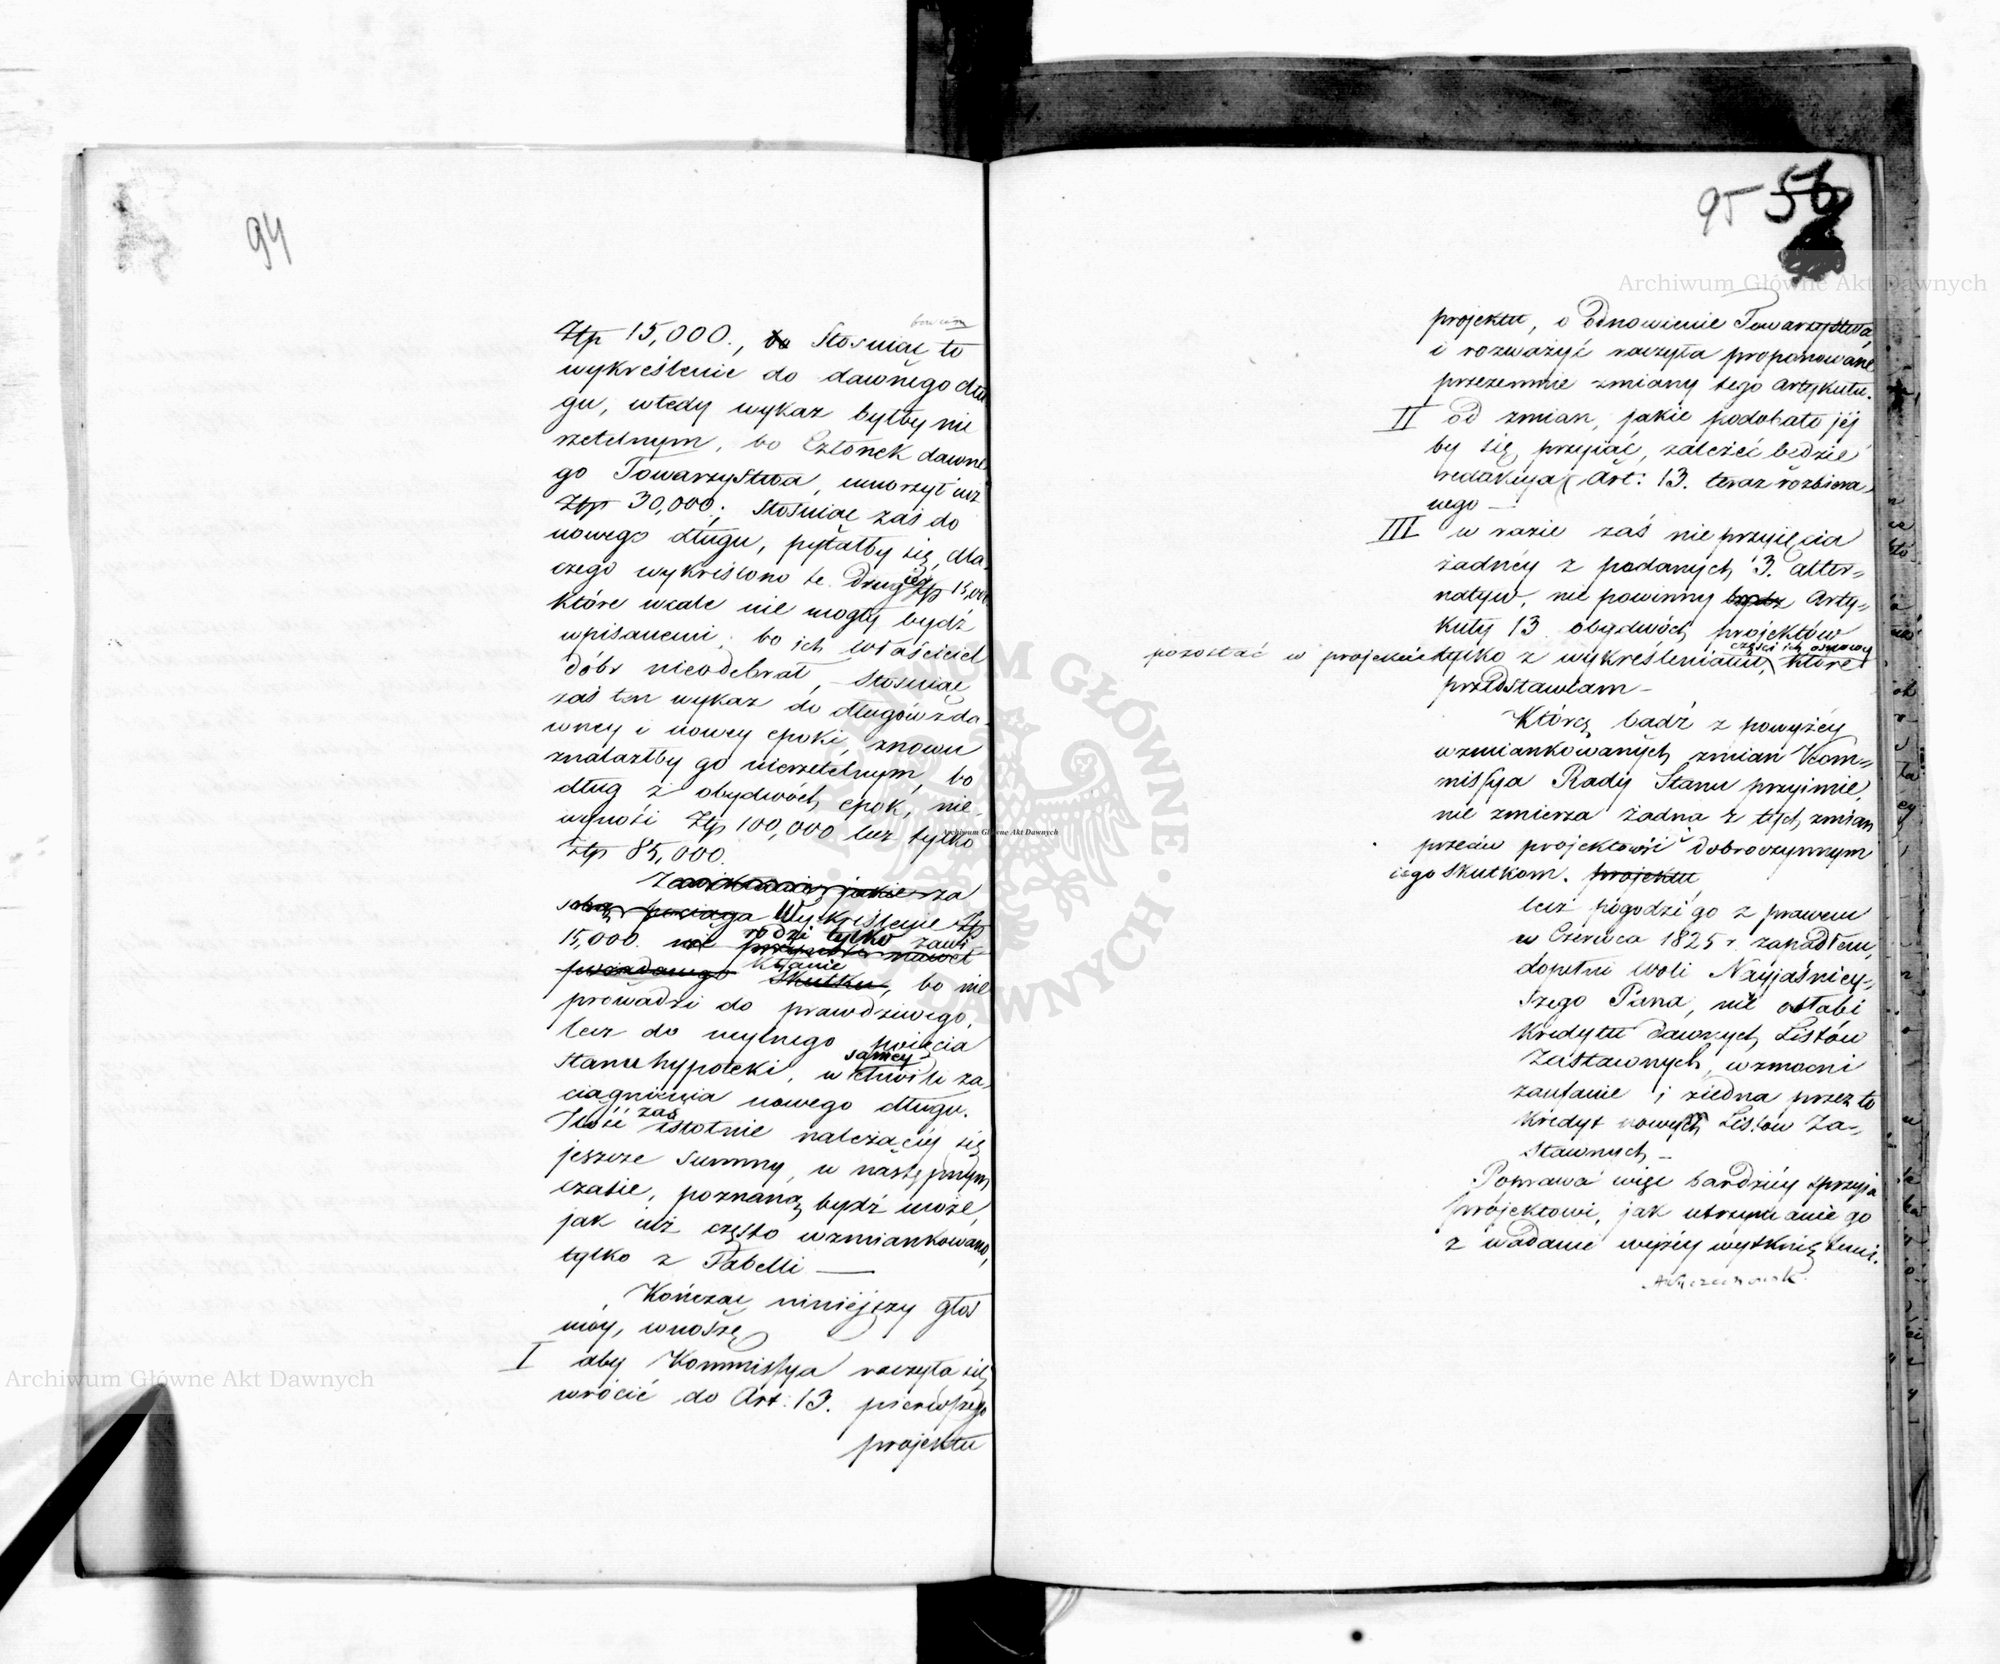 94
bowiem
Złp 15,000., bo Stosuiąc to
wykreślenie do dawnego dłu
gu, wtedy wykaz byłby nie
rzetelnym, bo Członek dawne
go Towarzystwa, umorzył iuż
Złp 30,000; stosuiąc zaś do
nowego długu, pytałby się, dla
czego wykreślono te drugie Złp 15,000
które wcale nie mogły bydź
wpisanemi, bo ich właściciel
dóbr nieodebrał, – Stosuiąc
zaś ten wykaz do długów z da
wney i nowey epoki, znowu
znalazłby go nierzetelnym, bo
dług z obydwóch epok, nie
wynosi Złp 100,000 lecz tylko
Złp 85,000.
za
sobą pociąga Wykreślenie Złp
15,000. nie rodzi tylko zawi
kłanie skutku, bo nie
prowadzi do prawdziwego,
lecz do mylnego poięcia
stanu hypoteki, w samey chwili za
ciągnienia nowego długu.
Ilość zaś istotnie należącéy się
jeszcze summy, w następnym
czasie, poznaną bydź może,
jak iuż często wzmiankowano,
tylko z Tabelli —
Kończąc niniéjszy głos
móy, wnoszę
I aby Kommissya raczyła się
wrócić do Art: 13. pierwszego
projektu
95 56
projektu, o Odnowienie Towarzystwa,
i rozważyć raczyła proponowane
przezemnie zmiany tego artykułu.
II od zmian, jakie podobało jéj
by się przyiąć, zależeć będzie
redakcya Art: 13. teraz rozbiera
nego —
III w razie zaś nie przyięcia
żadnéy z podanych 3. alter=
natyw, nie powinny bydź Arty=
kuły 13 obydwóch projektów
pozostać w projekcie tylko z wykreśleniami, części ich osnowy które
przedstawiam —
Którą bądź z powyżéy
wzmiankowanych zmian Kom=
missya Rady Stanu przyimie,
nie zmierza żadna z tych zmian
przeciw projektowi i dobroczynnym
iego skutkom. projektu
lecz pogodzi go z prawem
w Czerwca 1825 r. zapadłem,
dopełni woli Nayjaśniey=
szego Pana, nie osłabi
kredytu dawnych Listów
Zastawnych, wzmocni
zaufanie i ziedna przez to
kredyt nowych Listów Za=
stawnych —
Poprawa więc bardziéy sprzyia
projektowi, jak utrzymanie go
z wadami wyżéy wytkniętemi.
Archiwum Główne Akt Dawnych
Archiwum Główne Akt Dawnych
Archiwum Główne Akt Dawnych